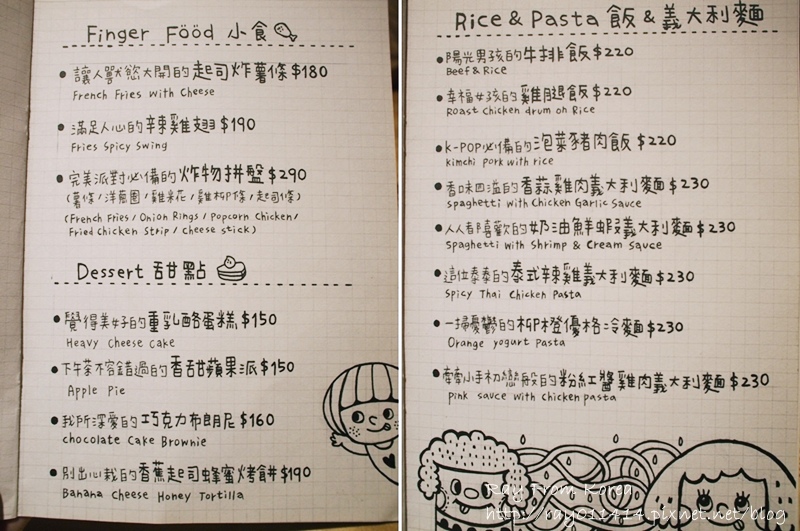 Finger Fööd 小食
讓人獸慾大開的起司炸薯條$180
French Fries with Cheese
滿足人心的辣雞翅$190
Fries Spicy Swing
完美派對必備的炸物拼盤$290
(薯條/洋蔥圈/雞米花/雞柳條/起司條)
(French Fries/Onion Rings/Popcorn Chicken/
Fried Chicken Strip/Cheese Stick)
Dessert 甜點
覺得美好的重乳酪蛋糕$150
Heavy Cheese Cake
下午茶不容錯過的香甜蘋果派$150
Apple Pie
我所深愛的巧克力布朗尼$160
chocolate Cake Brownie
別出心裁的香蕉起司蜂蜜烤餅$190
Banana Cheese Honey Tortilla
Rice & Pasta 飯 & 義大利麵
陽光男孩的牛排飯$220
Beef & Rice
幸福女孩的雞腿飯$220
Roast Chicken drum on Rice
K-POP必備的泡菜豬肉飯$220
kimchi pork with rice
香味四溢的香蒜雞肉義大利麵$230
spaghetti with Chicken Garlic Sauce
人人都喜歡的奶油鮮蝦義大利麵$230
Spaghetti with Shrimp & Cream Sauce
這位泰泰的泰式辣雞義大利麵$230
Spicy Thai Chicken Pasta
一掃憂鬱的柳橙優格冷麵$230
Orange yogurt Pasta
牽牽小手初戀般的粉紅醬雞肉義大利麵$230
pink sauce with chicken pasta
Ray From Korea
http://ray011414.pixnet.net/blog